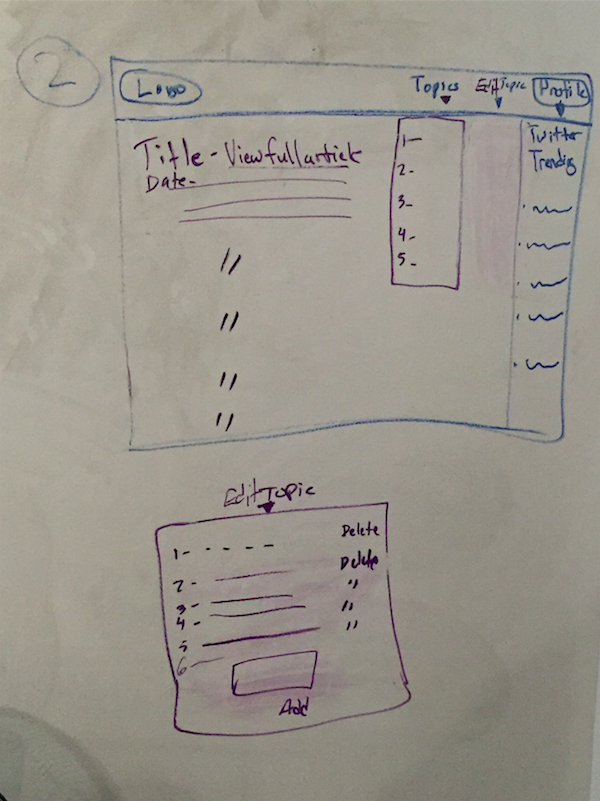 2
Logo Topics Edit Topic Profile
Title - View full article
Date-
1-
2-
3-
4-
5-
Twitter
Trending
"
"
"
"
Edit Topic
1- - - - - Delete
2- Delete
3- "
4- "
5 "
6-
Add